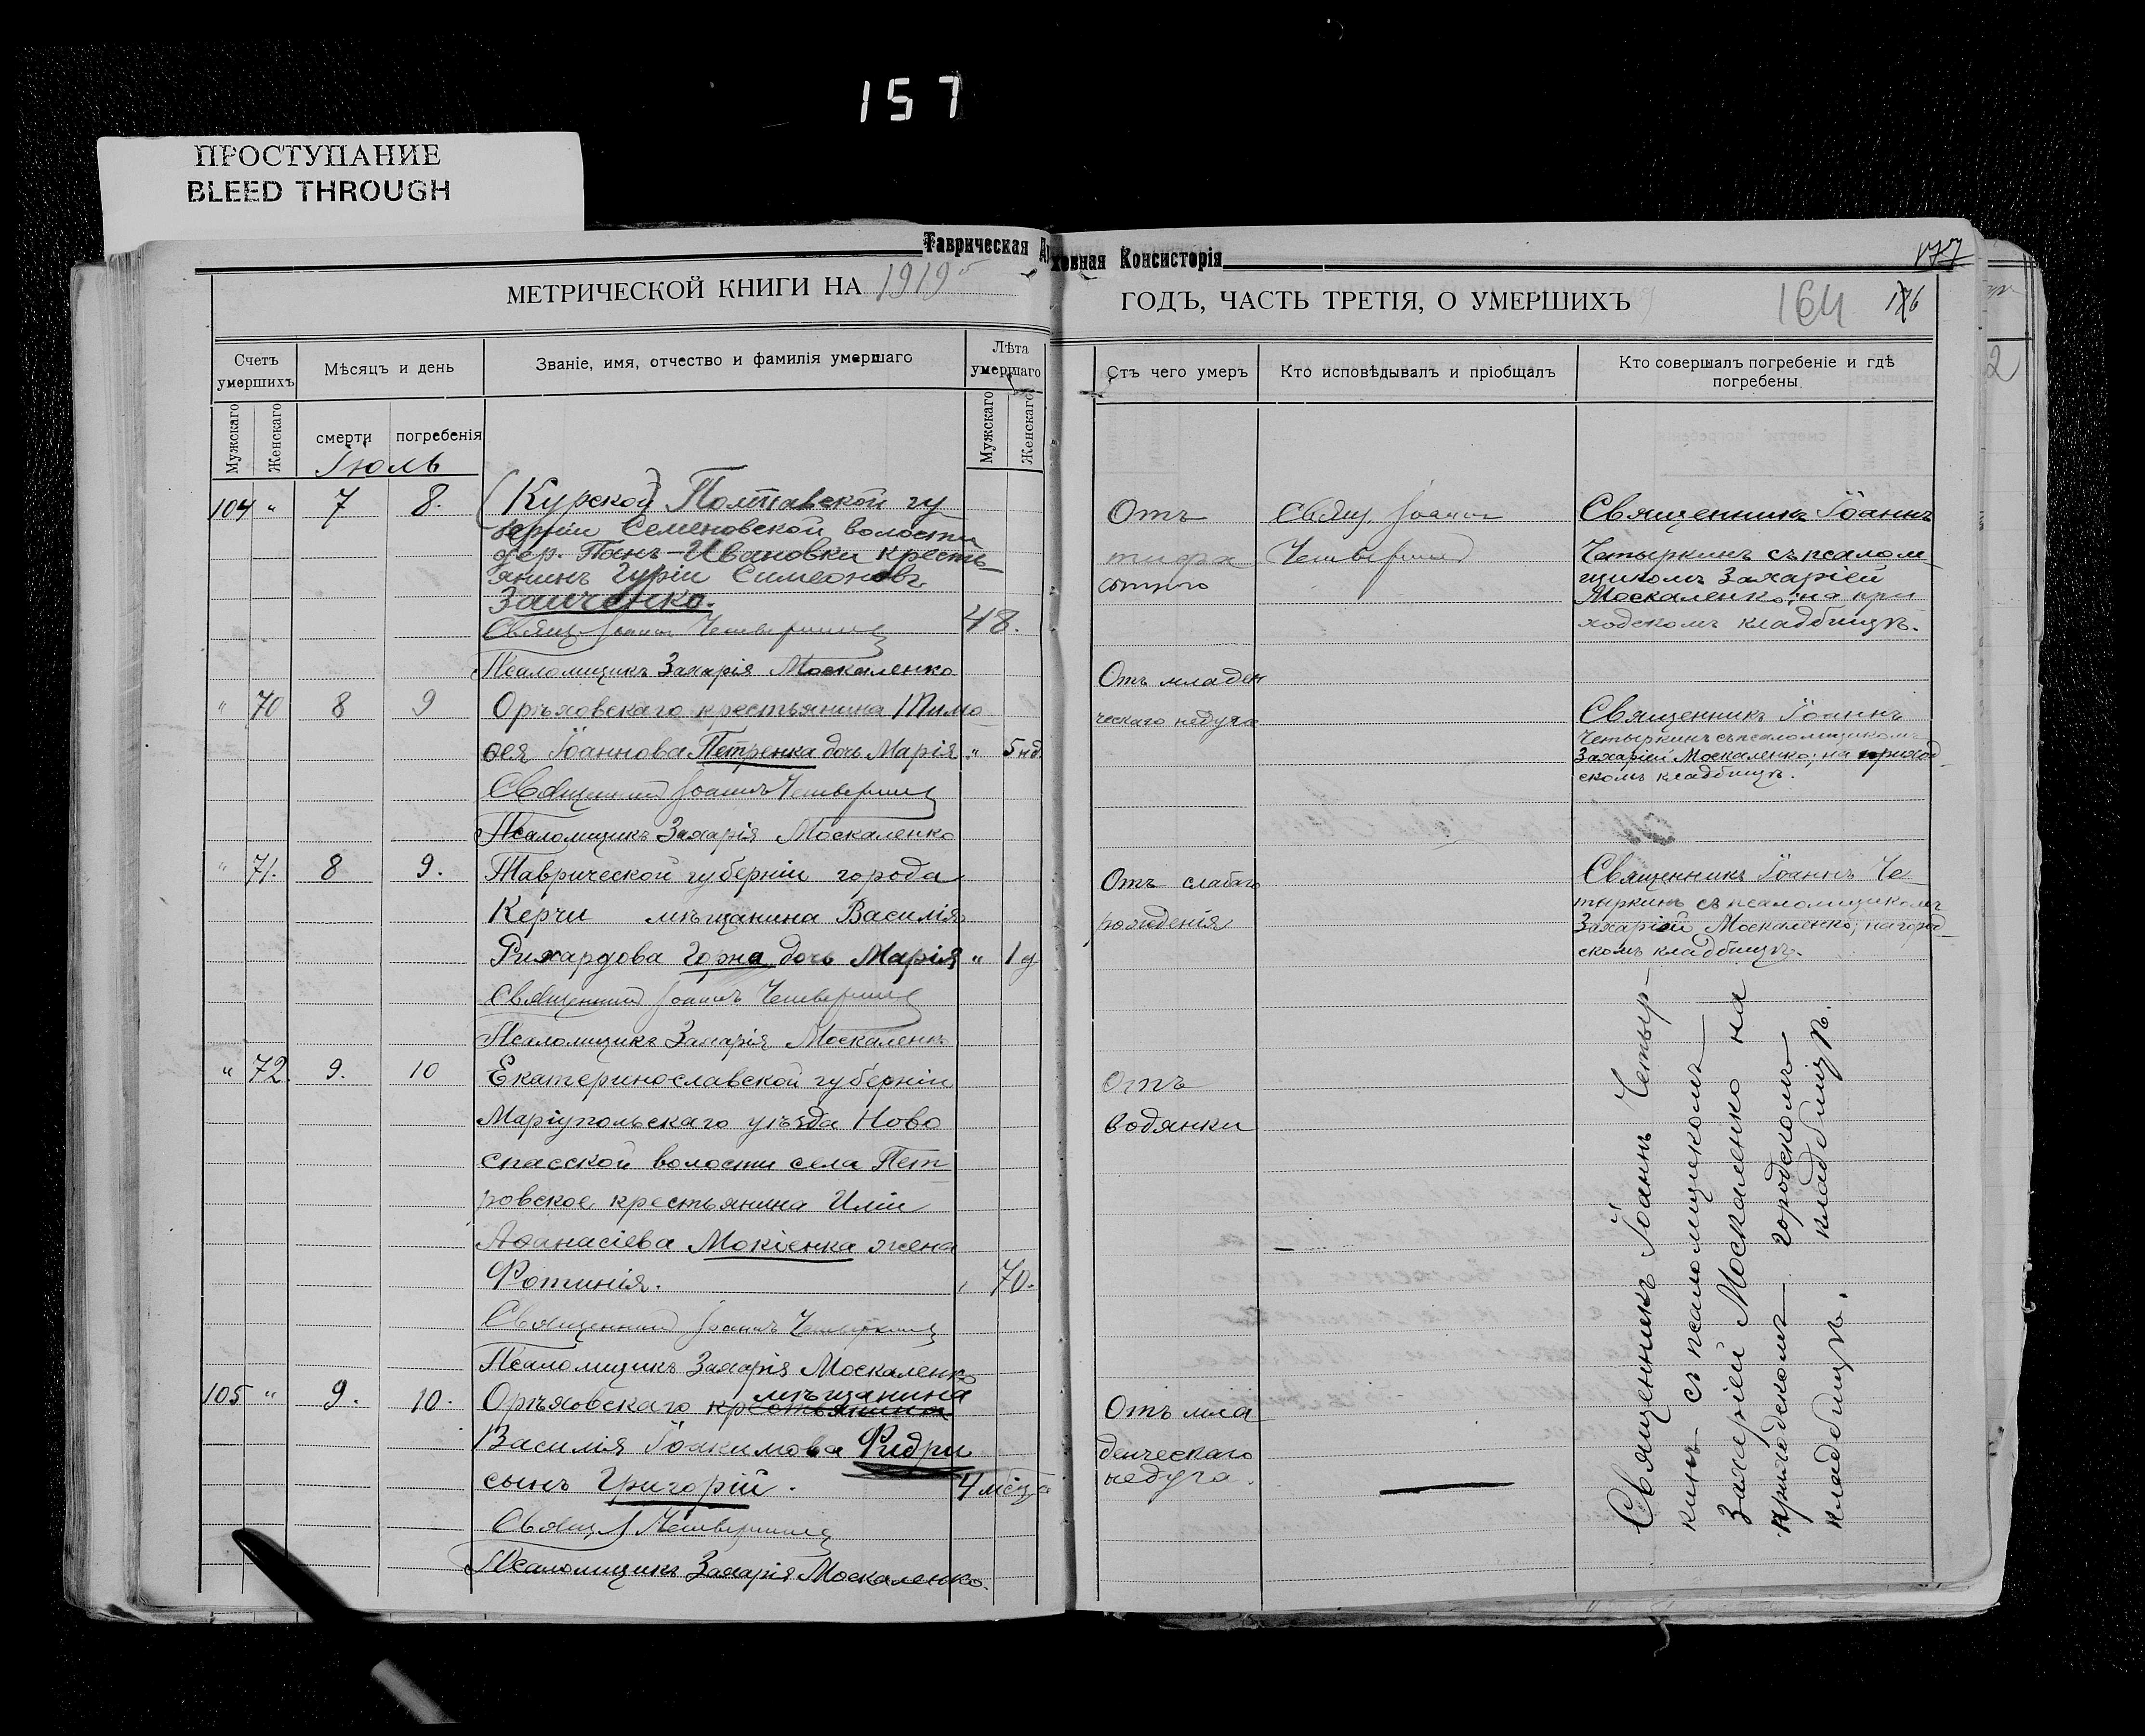 157
ПРОСТУПАНИЕ
BLEED THROUGH
Таврическая Духовная Консисторія
177
МЕТРИЧЕСКОЙ КНИГИ НА 1919
ГОДЪ, ЧАСТЬ ТРЕТІЯ, О УМЕРШИХЪ
164
176
Счетъ умершихъ
Мѣсяцъ и день
Званіе, имя, отчество и фамилія умершаго
Лѣта умершаго
Отъ чего умеръ
Кто исповѣдывалъ и пріобщалъ
Кто совершалъ погребеніе и гдѣ погребены
Мужскаго
Женскаго
смерти
погребенія
Мужскаго
Женскаго
Іюль
104 " 7 8.
(Курской) Полтавской гу
берніи Семеновской волости
дер. Панъ-Ивановки кресть-
янинъ Гурій Симеоновъ
Заиченко.
48.
Свящ Іоаннъ Четыркинъ
Псаломщикъ Захарія Москаленко
Отъ
тифа
сыпного
Свящ. Іоаннъ
Четыркинъ
Священникъ Іоаннъ
Четыркинъ съ псалом-
щикомъ Захаріей
Москаленко; на при
ходскомъ кладбищѣ.
" 70 8 9
Орѣховскаго крестьянина Тимо
ѳея Іоаннова Петренка дочь Марія. " 5 нд.
Священникъ Іоаннъ Четыркинъ
Псаломщикъ Захарія Москаленко
Отъ младен
ческаго недуга
Священникъ Іоаннъ
Четыркинъ съ псаломщикомъ
Захаріей Москаленко; на приход-
скомъ кладбищѣ.
" 71. 8 9.
Таврической губерніи города
Керчи мѣщанина Василія
Рихардова Горна дочь Марія " 1 д
Священникъ Іоаннъ Четыркинъ
Псаломщикъ Захарія Москаленко
Отъ слабаго
рожденія
Священникъ Іоаннъ Че-
тыркинъ съ псаломщикомъ
Захаріей Москаленко; на город-
скомъ кладбищѣ.
" 72. 9. 10
Екатеринославской губерніи
Маріупольскаго уѣзда Ново
спасской волости села Пет-
ровское крестьянина Иліи
Аѳанасіева Мокіенка жена
Фотинія. 70.
Священникъ Іоаннъ Четыркинъ
Псаломщикъ Захарія Москаленко
Отъ
водянки
105 " 9. 10.
мѣщанина
Орѣховскаго крестьянина
Василія Іоакимова Фидри
сынъ Григорій. 4 мѣсяца
Свящ І Четыркинъ
Псаломщикъ Захарія Москаленко.
Отъ мла-
денческаго
недуга.
Священникъ Іоаннъ Четыр-
кинъ съ псаломщикомъ
Захаріей Москаленко на
приходскомъ городскомъ
кладбищѣ. кладбищѣ.